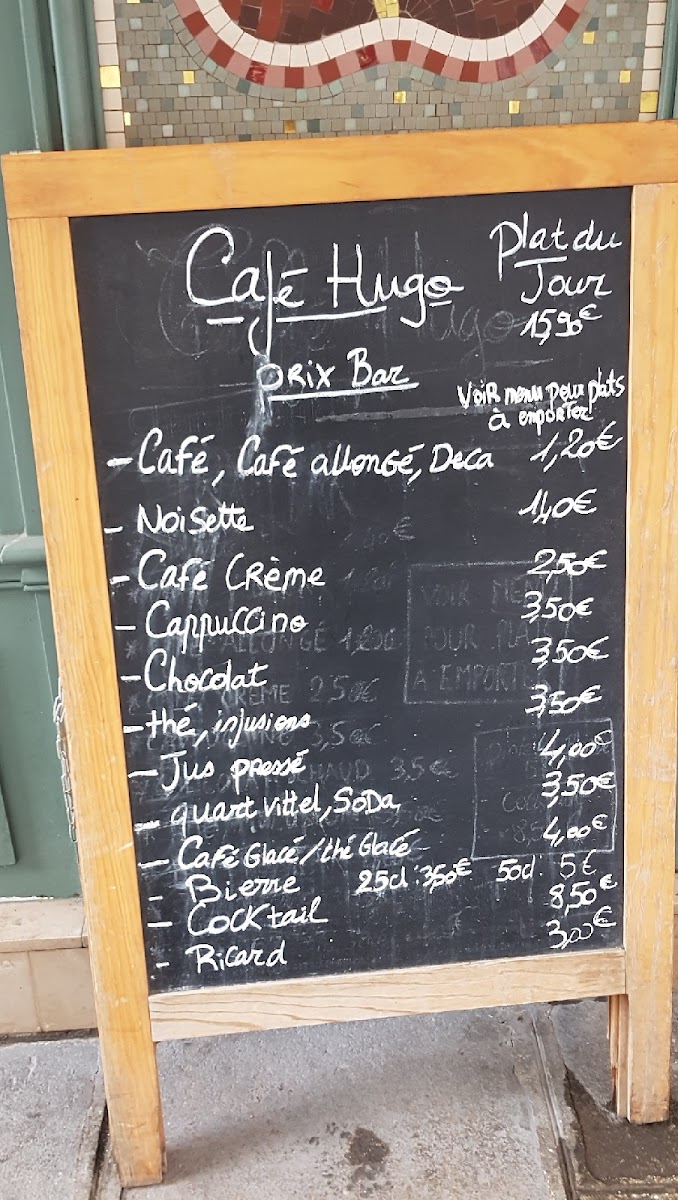 Café Hugo
Plat du
Jour
15,90€
PRIX Bar
VOIR menu pour plats
à emporter
- Café, Café allongé, Deca 1,20€
- Noisette 1,40€
- Café Crème 2,50€
- Cappuccino 3,50€
- Chocolat 3,50€
- thé, infusions 3,50€
- Jus pressé 4,00€
- quart vittel, SoDa 3,50€
- Café Glacé / thé Glacé 4,00€
- Bierre 25cl : 3,50€ 50cl : 5€
- Cocktail 8,50€
- Ricard 3,00€